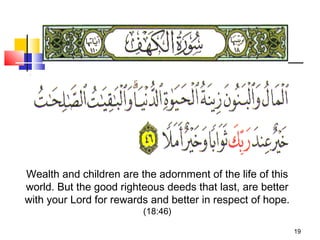 سُورَةُ الكَهْفِ
الْمَالُ وَالْبَنُونَ زِينَةُ الْحَيَوٰةِ الدُّنْيَا ۖ وَالْبَٰقِيَٰتُ الصَّٰلِحَٰتُ
خَيْرٌ عِندَ رَبِّكَ ثَوَابًا وَخَيْرٌ أَمَلًا ٤٦
Wealth and children are the adornment of the life of this
world. But the good righteous deeds that last, are better
with your Lord for rewards and better in respect of hope.
(18:46)
19